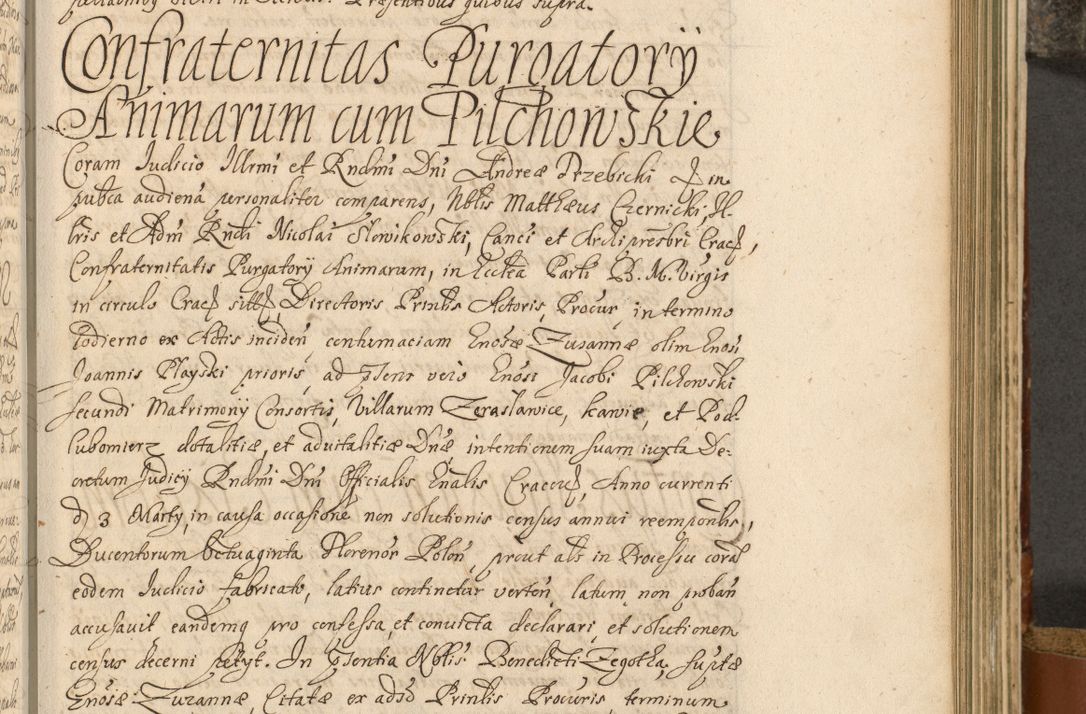 Confraternitas Purgatorÿ
Animarum cum Pilchowskie
Coram Iudicio Illrmi et Rndmi Dni Andreæ Trzebicki in
pubca audiena personaliter comparens, Nblis Matthæus Czernicki, Il-
lris et Adm Rndi Nicolai Słowikowski, Canci et Archipresbri Crac,
Confraternitatis Purgatorÿ Animarum, in Ecclea Parli B. M. Virgis
in circulo Crac sitt, Directoris Prinlis Actoris, Procur in termino
hodierno ex Actis inciden contumaciam Gnosæ Zuzannæ olim Gnosi
Joannis Płayski prioris, ad psens vero Gnosi Jacobi Pilchowski
secundi Matrimonÿ Consortis, Villarum Zerasławice, kawie, et Pod-
lubomierz dotalitiæ, et advitalitiæ Dnæ, intentionem suam iuxta De-
cretum Judicÿ Rndmi Dni Officialis Gnalis Cracov, Anno currenti
d 3 Martÿ, in causa occasione non solutionis census annui reemponlis,
Ducentorum Octuaginta Florenor Polon, prout als in Processu coral
eodem Iudicio fabricato, latius continetur verten, latum, non proban
accusavit eandemq pro confessa, et convicta declarari, et solutionem
census decerni petyt. In psentia Nblis Benedicti Zegotha, suptæ
Gnosæ Zuzannæ, Citatæ ex adso Prinlis Procuris, terminum